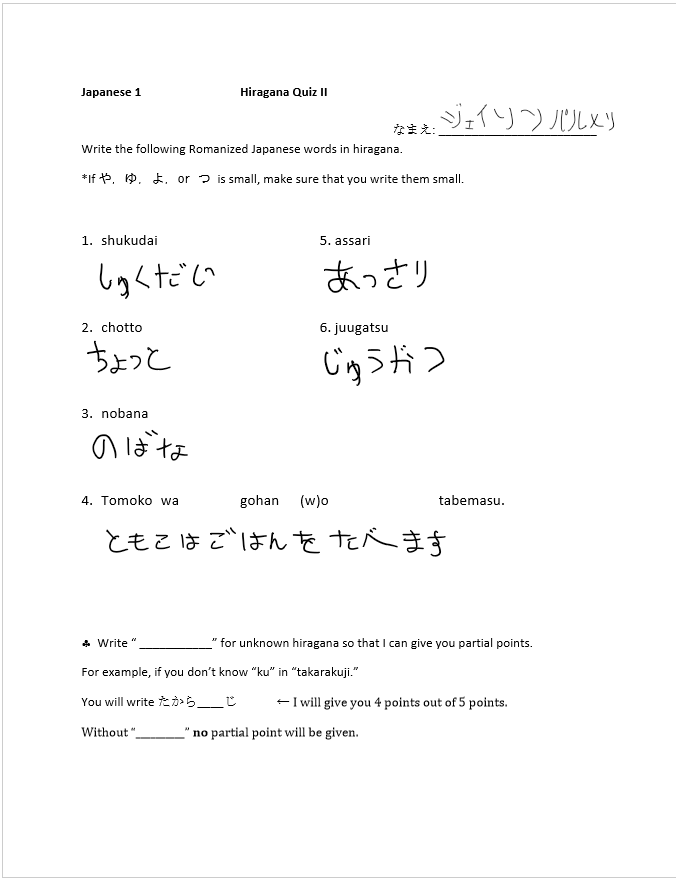 Japanese 1 Hiragana Quiz II
なまえ: ジェイソン
Write the following Romanized Japanese words in hiragana.
*If や, ゆ, よ, or つ is small, make sure that you write them small.
1. shukudai 5. assari
しゅくだい あっさり
2. chotto 6. juugatsu
ちょっと じゅうがつ
3. nobana
のばな
4. Tomoko wa gohan (w)o tabemasu.
ともこはごはんをたべます
♣ Write “ ___________” for unknown hiragana so that I can give you partial points.
For example, if you don’t know “ku” in “takarakuji.”
You will write たから____じ ← I will give you 4 points out of 5 points.
Without “________” no partial point will be given.